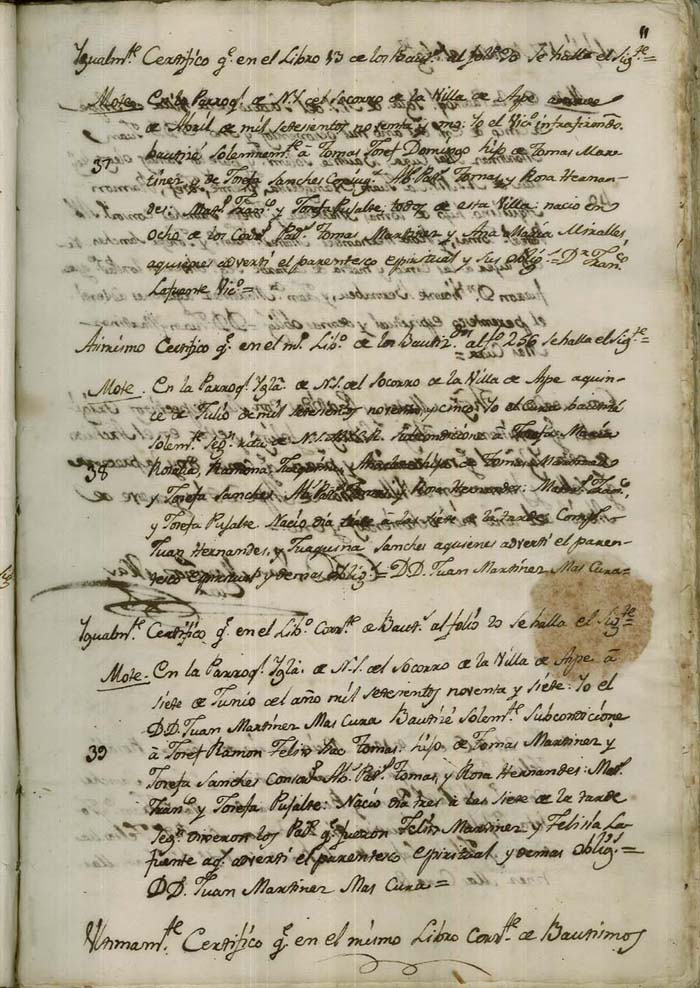 11
Igualm.te Certifico q.e en el Libro 13 de los Baut.s al fol. 20 se halla el Sig.te =
Mote. En la Parroq.l de N.S. del Socorro de la Villa de Aspe a nueve
de Abril de mil setesientos noventa y uno: Yo el Vic.o infrafirmdo.
bautisé solemnem.te â Tomas Josef Domingo hijo de Tomas Mar-
37
tines y de Josefa Sanches Consug.s Ab.s Pat.s Tomas, y Rosa Hernan-
des: Mat.s Fran.co y Josefa Pujalte: todos de esta Villa: nacio en
Ocho de los Corr.s Pad.s Tomas Martinez y Ana Maria Miralles
aquienes advertí el parentesco espiritual y sus oblig.s = D.r Fran.co
Lafuente Vic.o =
Asimismo Certifico q.e en el m.o Lib.o de los Bautiz.mos al fo. 256 se halla el Sig.te =
Mote. En la Parroq.l Ygla. de N.S. del Socorro de la Villa de Aspe aquin-
ce de Julio de mil setesientos noventa y cinco: Yo el Cura bautisé
solem.te Seg.n de N.S. subcondicione â Josefa Maria
38
Ramona de Tomas Martinez
y Josefa Sanches Ab.s Pat.s Tomas y Rosa Hernandes: Mat.s Fran.co
y Josefa Pujalte Nacio dia a las siete de la tarde
Juan Hernandes, y Juaquina Sanches aquienes advertí el paren-
tesco espiritual y demas oblig.s = D.D. Juan Martinez Mas Cura =
Igualm.te Certifico q.e en el Lib.o Corr.te de Baut.s al folio 20 se halla el Sig.te
Mote. En la Parroq.l Ygla. de N.S. del Socorro de la Villa de Aspe â
siete de Junio del año mil setesientos noventa y siete: Yo el
D.D. Juan Martinez Mas Cura Bautisé Solem.te Subcondicione
39
â Josef Ramon Felis Tomas: hijo de Tomas Martinez y
Josefa Sanches Ab.s Pat.s Tomas, y Rosa Hernandes: Mat.s
Fran.co y Josefa Pujalte: Nacio dia tres â las siete de la tarde
Seg.n dixeron los Pad.s q.e fueron Felis Martinez y Felisia La-
fuente aq.s advertí el parentesco espiritual, y demas oblig.s =
D.D. Juan Martinez Mas Cura =
Ultimam.te Certifico q.e en el mismo Libro Corr.te de Bautismos